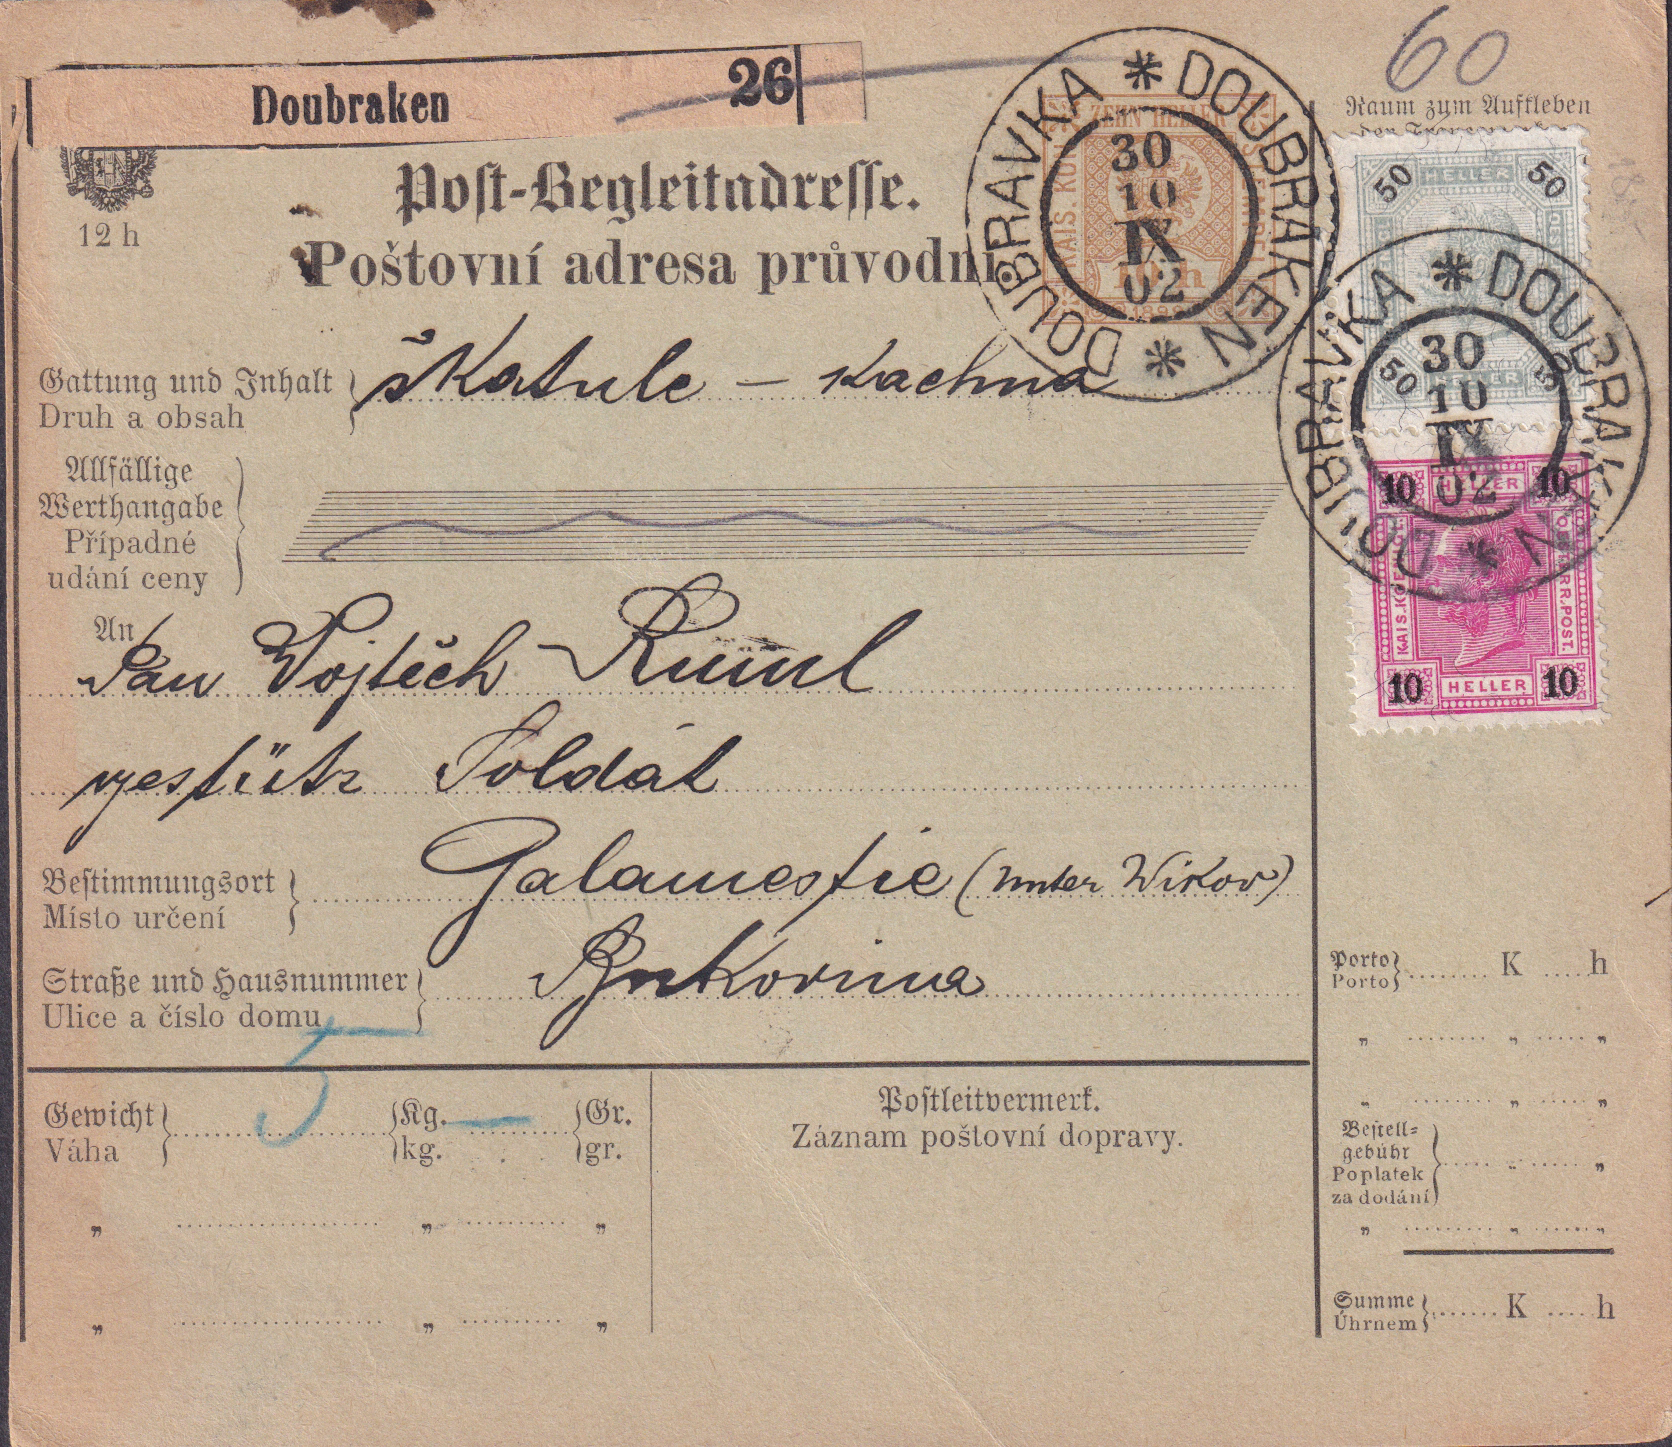 60
Doubraken 26
Raum zum Aufkleben
12 h
Post-Begleitadresse.
Poštovní adresa průvodní
ZEHN HELLER
KAIS. KÖN.
10 h
DOUBRAVKA * DOUBRAKEN *
30
10
IX
02
50 HELLER 50
50 HELLER
DOUBRAVKA * DOUBRAKEN *
30
10
IX
02
10 HELLER 10
KAIS.KOENIGL. OESTERR.POST.
10 HELLER 10
Gattung und Inhalt
Druh a obsah
škatule – kachna
Allfällige
Werthangabe
Případné
udání ceny
An
Pan Vojtěch Ruml
Poldát
Bestimmungsort
Místo určení
Galamestie (unter Wikov)
Straße und Hausnummer
Ulice a číslo domu
Bukovina
Gewicht
Váha
5 Kg. — Gr.
kg. gr.
„ „ „
„ „ „
Postleitvermerk.
Záznam poštovní dopravy.
Porto K h
Porto
„ „ „
„ „ „
Bestell-
gebühr
Poplatek
za dodání
„ „
„ „ „
Summe K h
Úhrnem